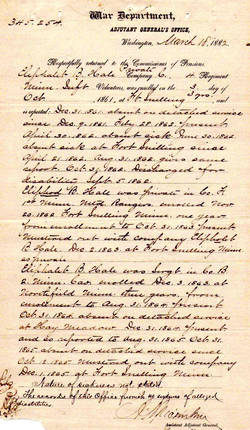 345.254.
War Department,
ADJUTANT GENERAL'S OFFICE,
Washington, March 18, 1882
Respectfully returned to the Commissioner of Pensions
Eliphalet B. Hale Private
Company C, 4 Regiment
Minn. Inft Volunteers, was enrolled on the 3 day of
Oct, 1861, at Ft Snelling 3 yrs, and
is reported: Dec. 31. 61 absent on detached service
since Dec. 9. 1861. Feby. 28. 1862. Present
April 30. 1862. absent sick June 30. 1862
absent sick at Fort Snelling since
April 21. 1862. Aug 31. 1862 gives same
report Oct. 31. 1862. Discharged for
disability Sept. 5. 1862.
B. Hale was Private in Co. F
1st Minn. Mtd Rangers enrolled Nov.
20. 1862 Fort Snelling Minn, one year
from enrollment to Oct. 31. 1863 Present
Mustered out with company
B. Hale Dec. 2. 1863 at Fort Snelling Minn
as private
Eliphalet B. Hale was Sergt in Co. B
2. Minn. Cav. enrolled Dec. 3. 1863. at
Northfield Minn three years, from
enrollment to Aug. 31. 1864 Present
Oct. 31. 1864 absent on detached service
at Hay Meadow Dec. 31. 1864 Present
and so reported to Aug. 31. 1865 Oct. 31
1865 absent on detached service since
Oct. 1865 Mustered out with company
Dec. 1. 1865 at Fort Snelling Minn.
Nature of sickness not stated.
The records of this Office furnish no evidence of alleged
disabilities.
Assistant Adjutant General.